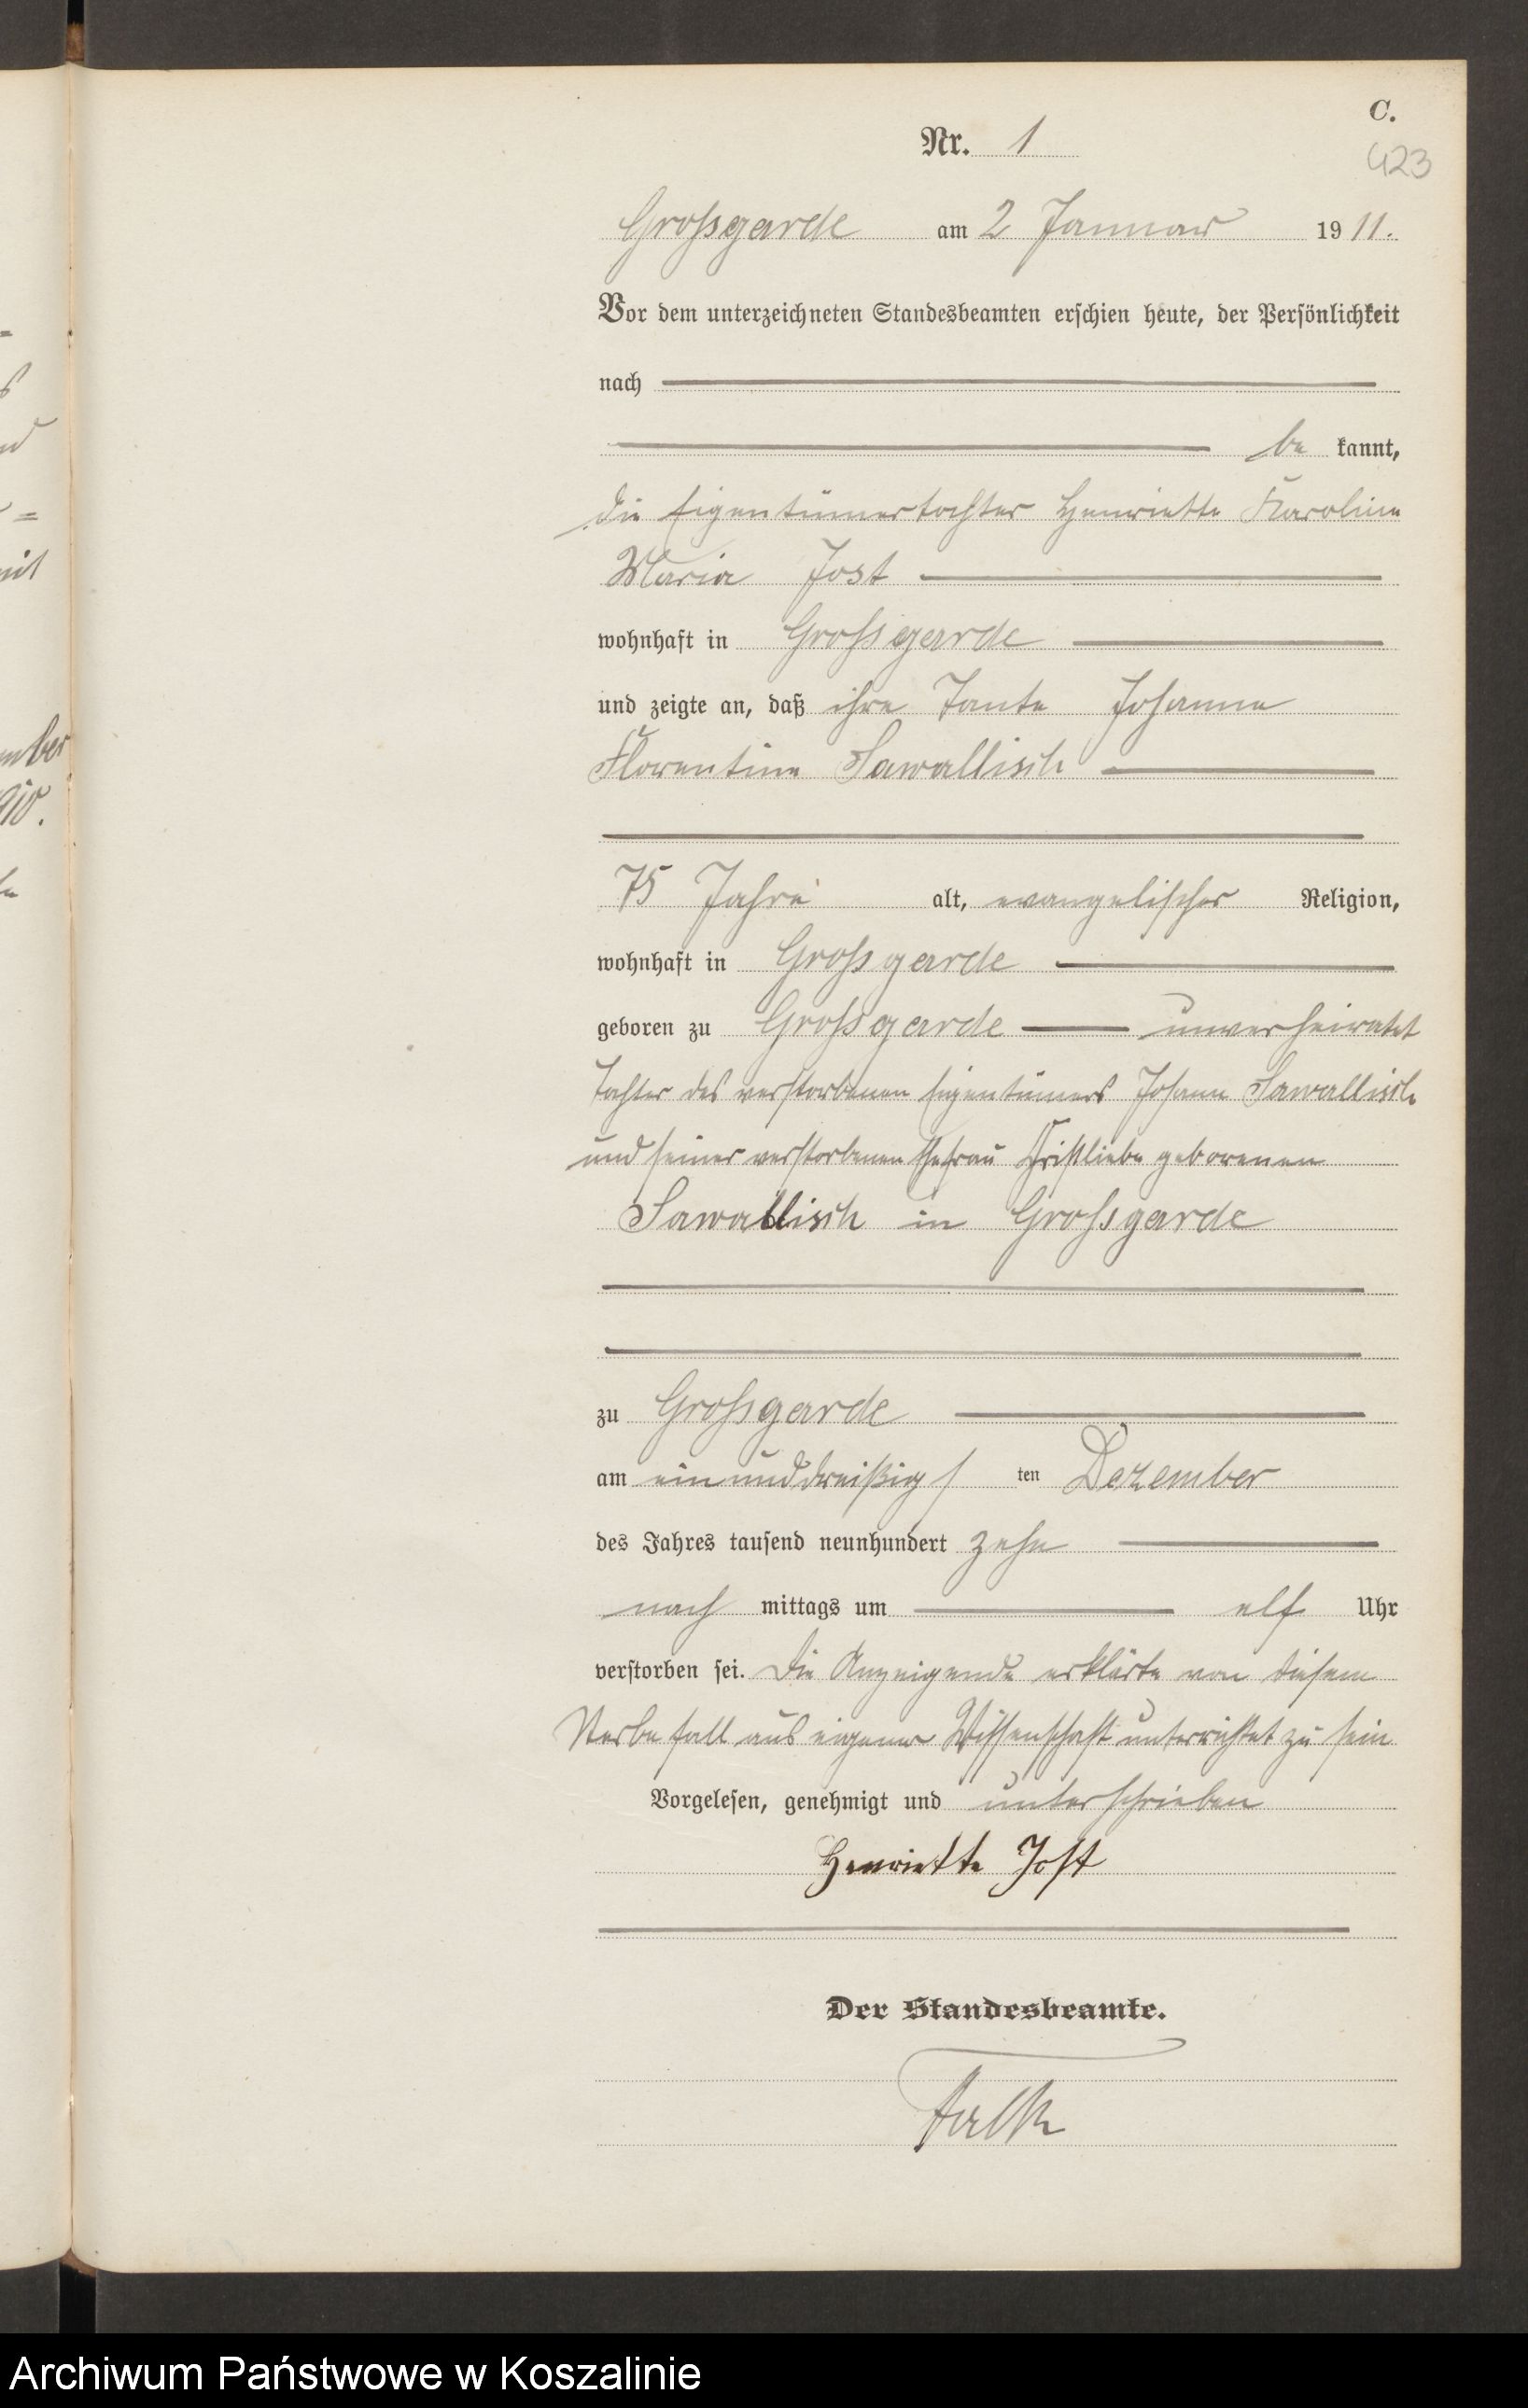 C.
Nr. 1
423
Grossgarde am 2 Januar 1911.
Vor dem unterzeichneten Standesbeamten erschien heute, der Persönlichkeit
nach
be kannt,
die Eigentümertochter Henriette Karoline
Maria Jost
wohnhaft in Grossgarde
und zeigte an, daß ihre Tante Johanne
Florentine Sawallisch
75 Jahre alt, evangelischer Religion,
wohnhaft in Grossgarde
geboren zu Grossgarde unverheiratet
Tochter des verstorbenen Eigentümers Johann Sawallisch
und seiner verstorbenen Ehefrau Christliebe geborenen
Sawallisch in Grossgarde
zu Grossgarde
am einunddreißigs ten Dezember
des Jahres tausend neunhundert zehn
nach mittags um elf Uhr
verstorben sei. Die Anzeigende erklärte von diesem
Sterbefall aus eigener Wissenschaft unterrichtet zu sein
Vorgelesen, genehmigt und unterschrieben
Henriette Jost
Der Standesbeamte.
Falk
Archiwum Państwowe w Koszalinie